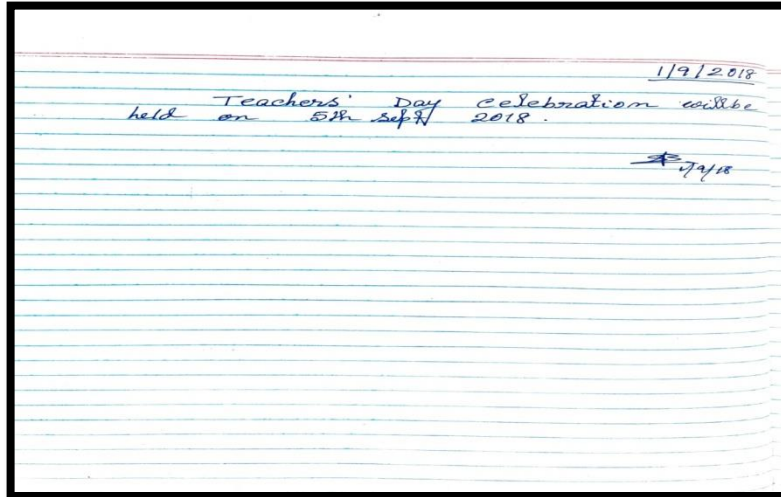 1/9/2018
Teachers' Day celebration will be
held on 5th Sept 2018.
1/9/18